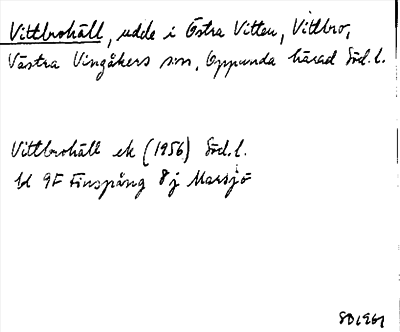 Vittbrohäll, udde i Östra Vitten, Vittbro,
Västra Vingåkers sn, Oppunda härad Söd.l.
Vittbrohäll ek (1956) Söd.l.
bl 9F Finspång 8j Marsjö
SD1961